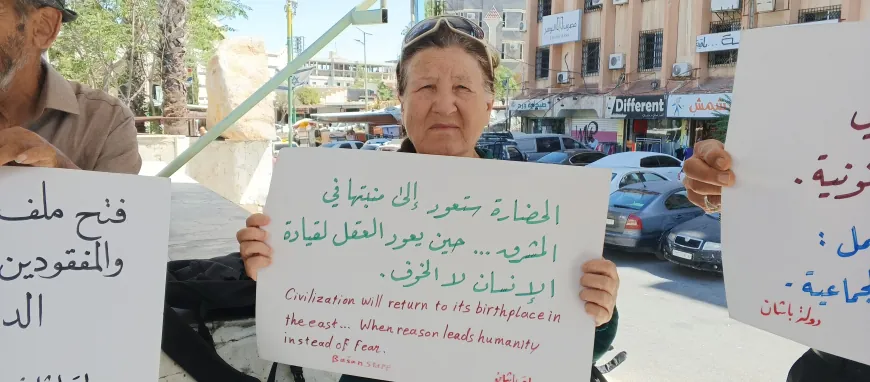 فتح ملف
والمفقودين
الد
الحضارة ستعود إلى منبتها في
المشرق ... حين يعود العقل لقيادة
الإنسان لا الخوف.
Civilization will return to its birthplace in
the east... When reason leads humanity
instead of fear.
دولة باشان
Different
شمش
مل :
جماعية .
دولة باشان